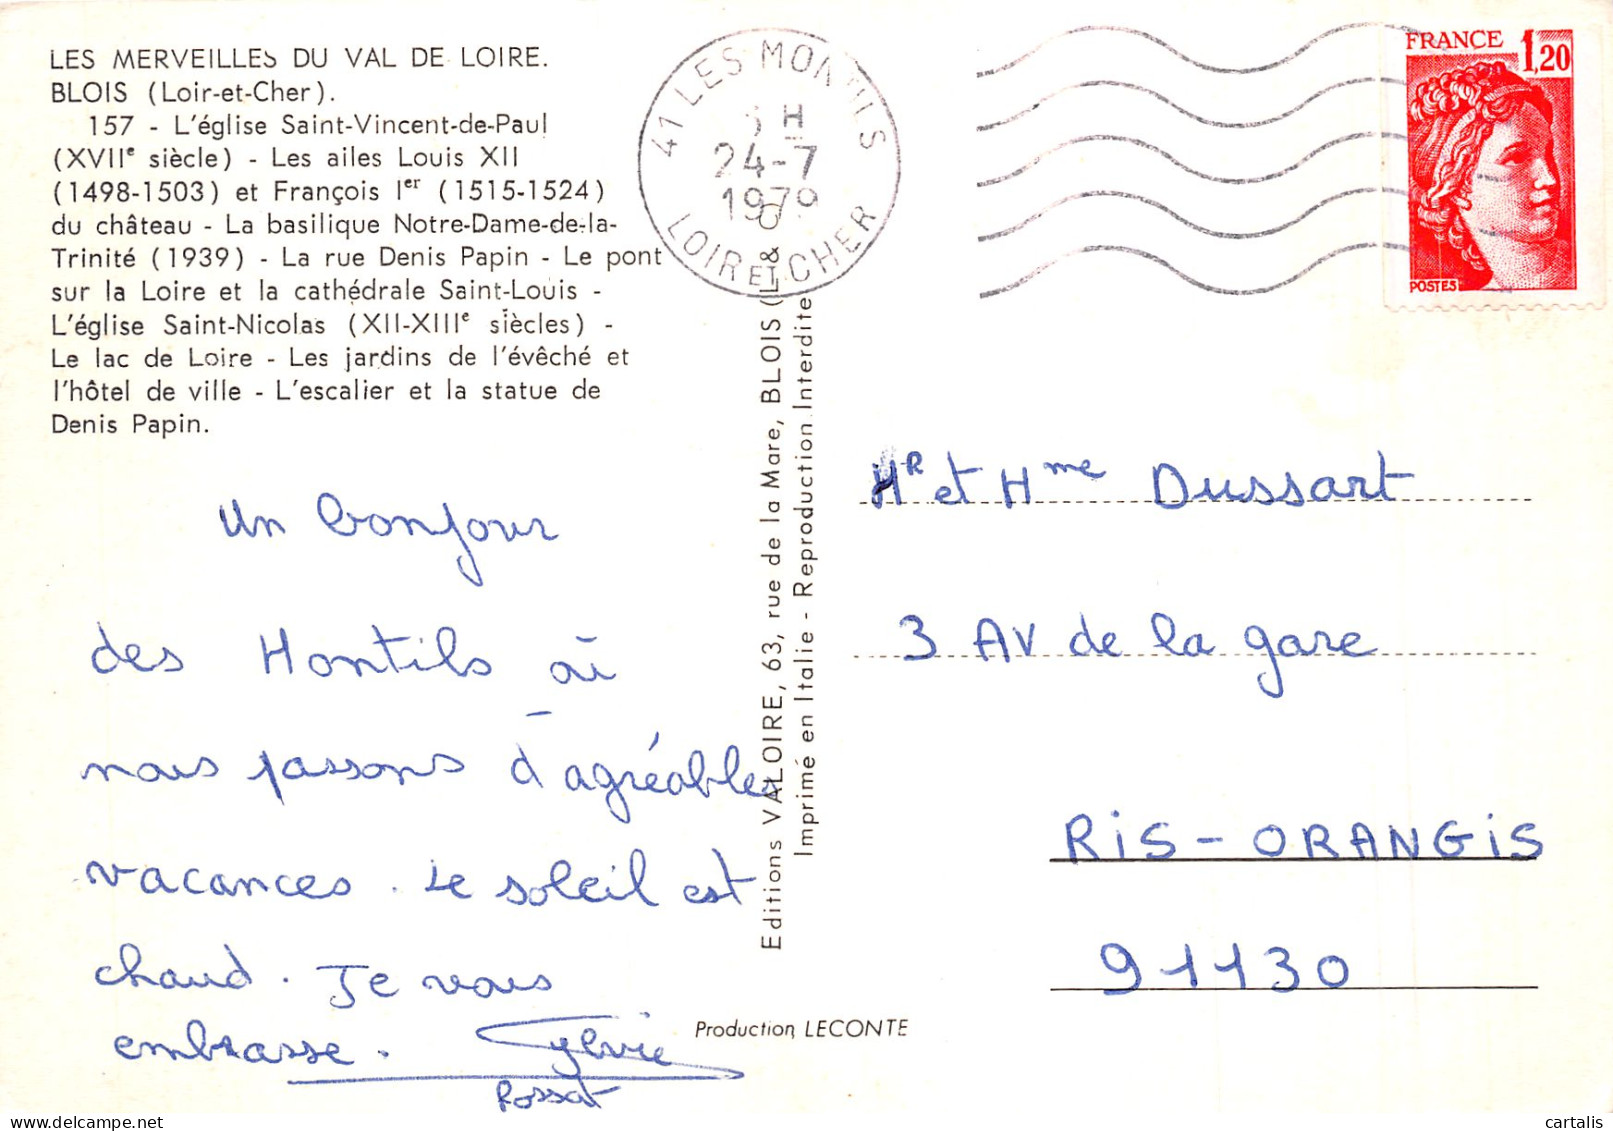 LES MERVEILLES DU VAL DE LOIRE.
BLOIS (Loir-et-Cher).
157 - L'église Saint-Vincent-de-Paul
(XVIIe siècle) - Les ailes Louis XII
(1498-1503) et François Ier (1515-1524)
du château - La basilique Notre-Dame-de-la-
Trinité (1939) - La rue Denis Papin - Le pont
sur la Loire et la cathédrale Saint-Louis -
L'église Saint-Nicolas (XII-XIIIe siècles) -
Le lac de Loire - Les jardins de l'évêché et
l'hôtel de ville - L'escalier et la statue de
Denis Papin.
Un bonjour
des Montils où
nous passons d'agréables
vacances. Le soleil est
chaud. Je vous
embrasse. Sylvie
Rossat
41 LES MONTILS
H
24-7
1979
LOIR ET CHER
Editions VALOIRE, 63, rue de la Mare, BLOIS (L. & C
Imprimé en Italie - Reproduction Interdite
Production LECONTE
FRANCE 1,20
POSTES
Mr et Mme Dussart
3 AV de la gare
RiS-ORANGiS
91130
cartalis